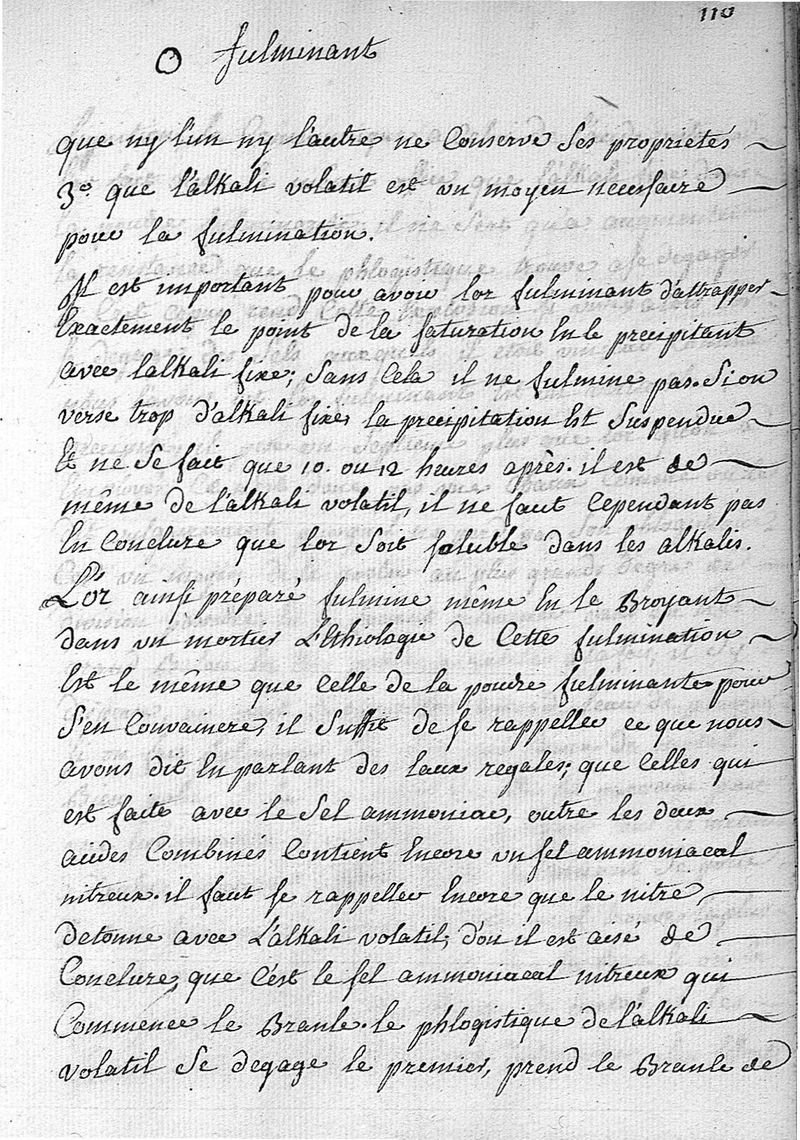 110
O fulminant
que ny l'un ny l'autre ne Conserve Ses proprietés
3.o que l'alkali volatil est un moyen necessaire
pour la fulmination.
Il est important pour avoir l'or fulminant d'attrapper
Exactement le point de la saturation En le precipitant
avec l'alkali fixe; Sans Cela il ne fulmine pas. Si on
verse trop d'alkali fixe, la precipitation Est Suspendue
Et ne Se fait que 10. ou 12 heures après. il est de
même de l'alkali volatil, il ne faut Cependant pas
En Conclure que l'or Soit soluble dans les alkalis.
L'or ainsi préparé fulmine même En le Broyant
dans un mortier L'Ethiologie de Cette fulmination
Est le même que Celle de la poudre fulminante pour
S'en Convaincre, il Suffit de se rappeller ce que nous
avons dit En parlant des Eaux regales; que Celles qui
est faite avec le Sel ammoniac, outre les deux
acides Combinés Contient Encore un sel ammoniacal
nitreux. il faut se rappeller Encore que le nitre
detonne avec L'alkali volatil; d'ou il est aisé de
Conclure, que C'est le sel ammoniacal nitreux qui
Commence le Branle. le phlogistique de l'alkali
volatil Se degage le premier, prend le Branle de